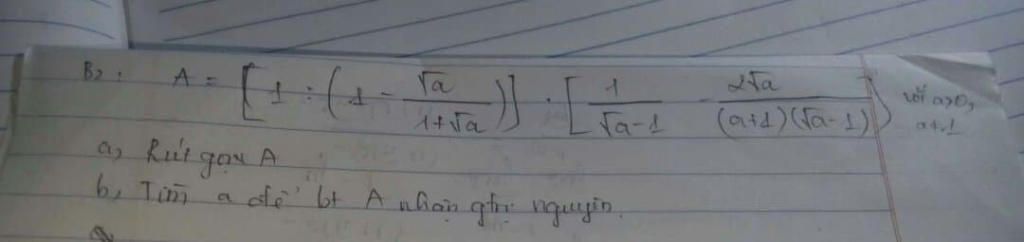 B2: A = [1 : (1 - √a/(1+√a))] · [1/(√a-1) - 2√a/((a+1)(√a-1))) với a>0, a≠1
a, Rút gọn A
b, Tìm a để bt A nhận gtrị nguyên.